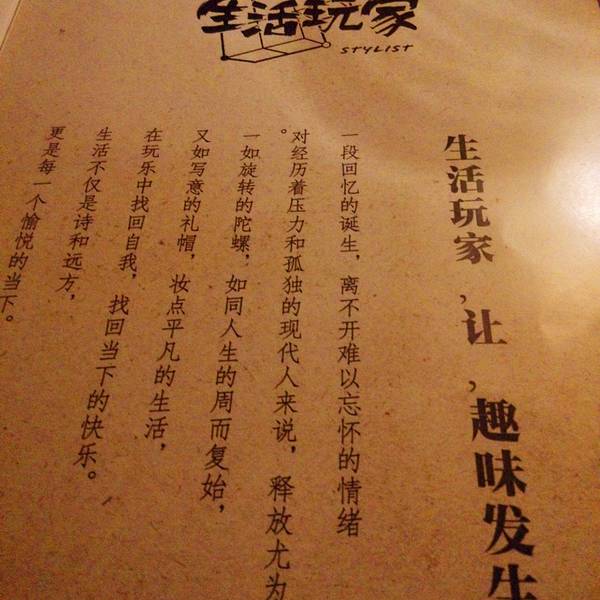 生活玩家
STYLIST
生活玩家,让,趣味发生
一段回忆的诞生,离不开难以忘怀的情绪
对经历着压力和孤独的现代人来说,释放尤为
。
一如旋转的陀螺,如同人生的周而复始,
又如写意的礼帽,妆点平凡的生活,
在玩乐中找回自我,找回当下的快乐。
生活不仅是诗和远方,
更是每一个愉悦的当下。